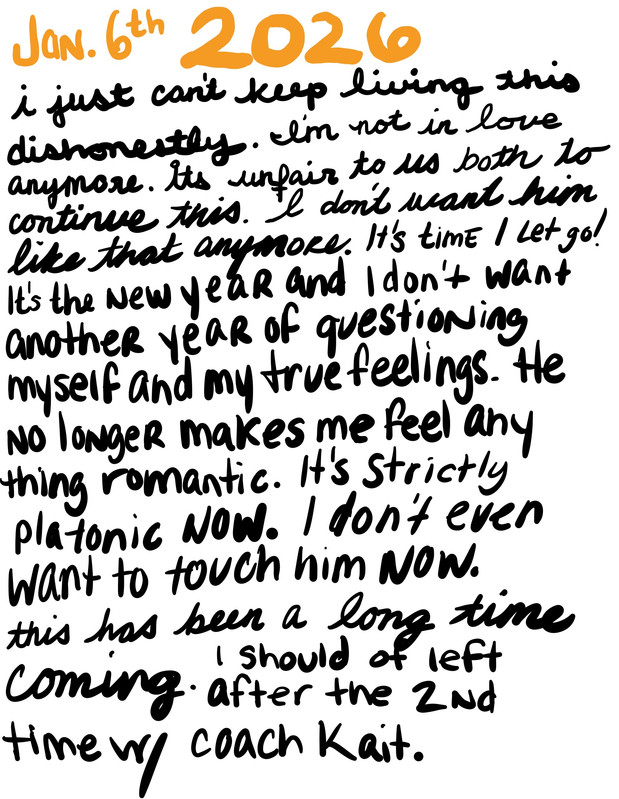 Jan. 6th 2026
i just can't keep living this
dishonestly. I'm not in love
anymore. Its unfair to us both to
continue this. I don't want him
like that anymore. It's time I let go!
It's the New year and I don't want
another year of questioning
myself and my true feelings. He
no longer makes me feel any
thing romantic. It's strictly
platonic NOW. I don't even
want to touch him NOW.
this has been a long time
coming. I should of left
after the 2nd
time w/ coach Kait.